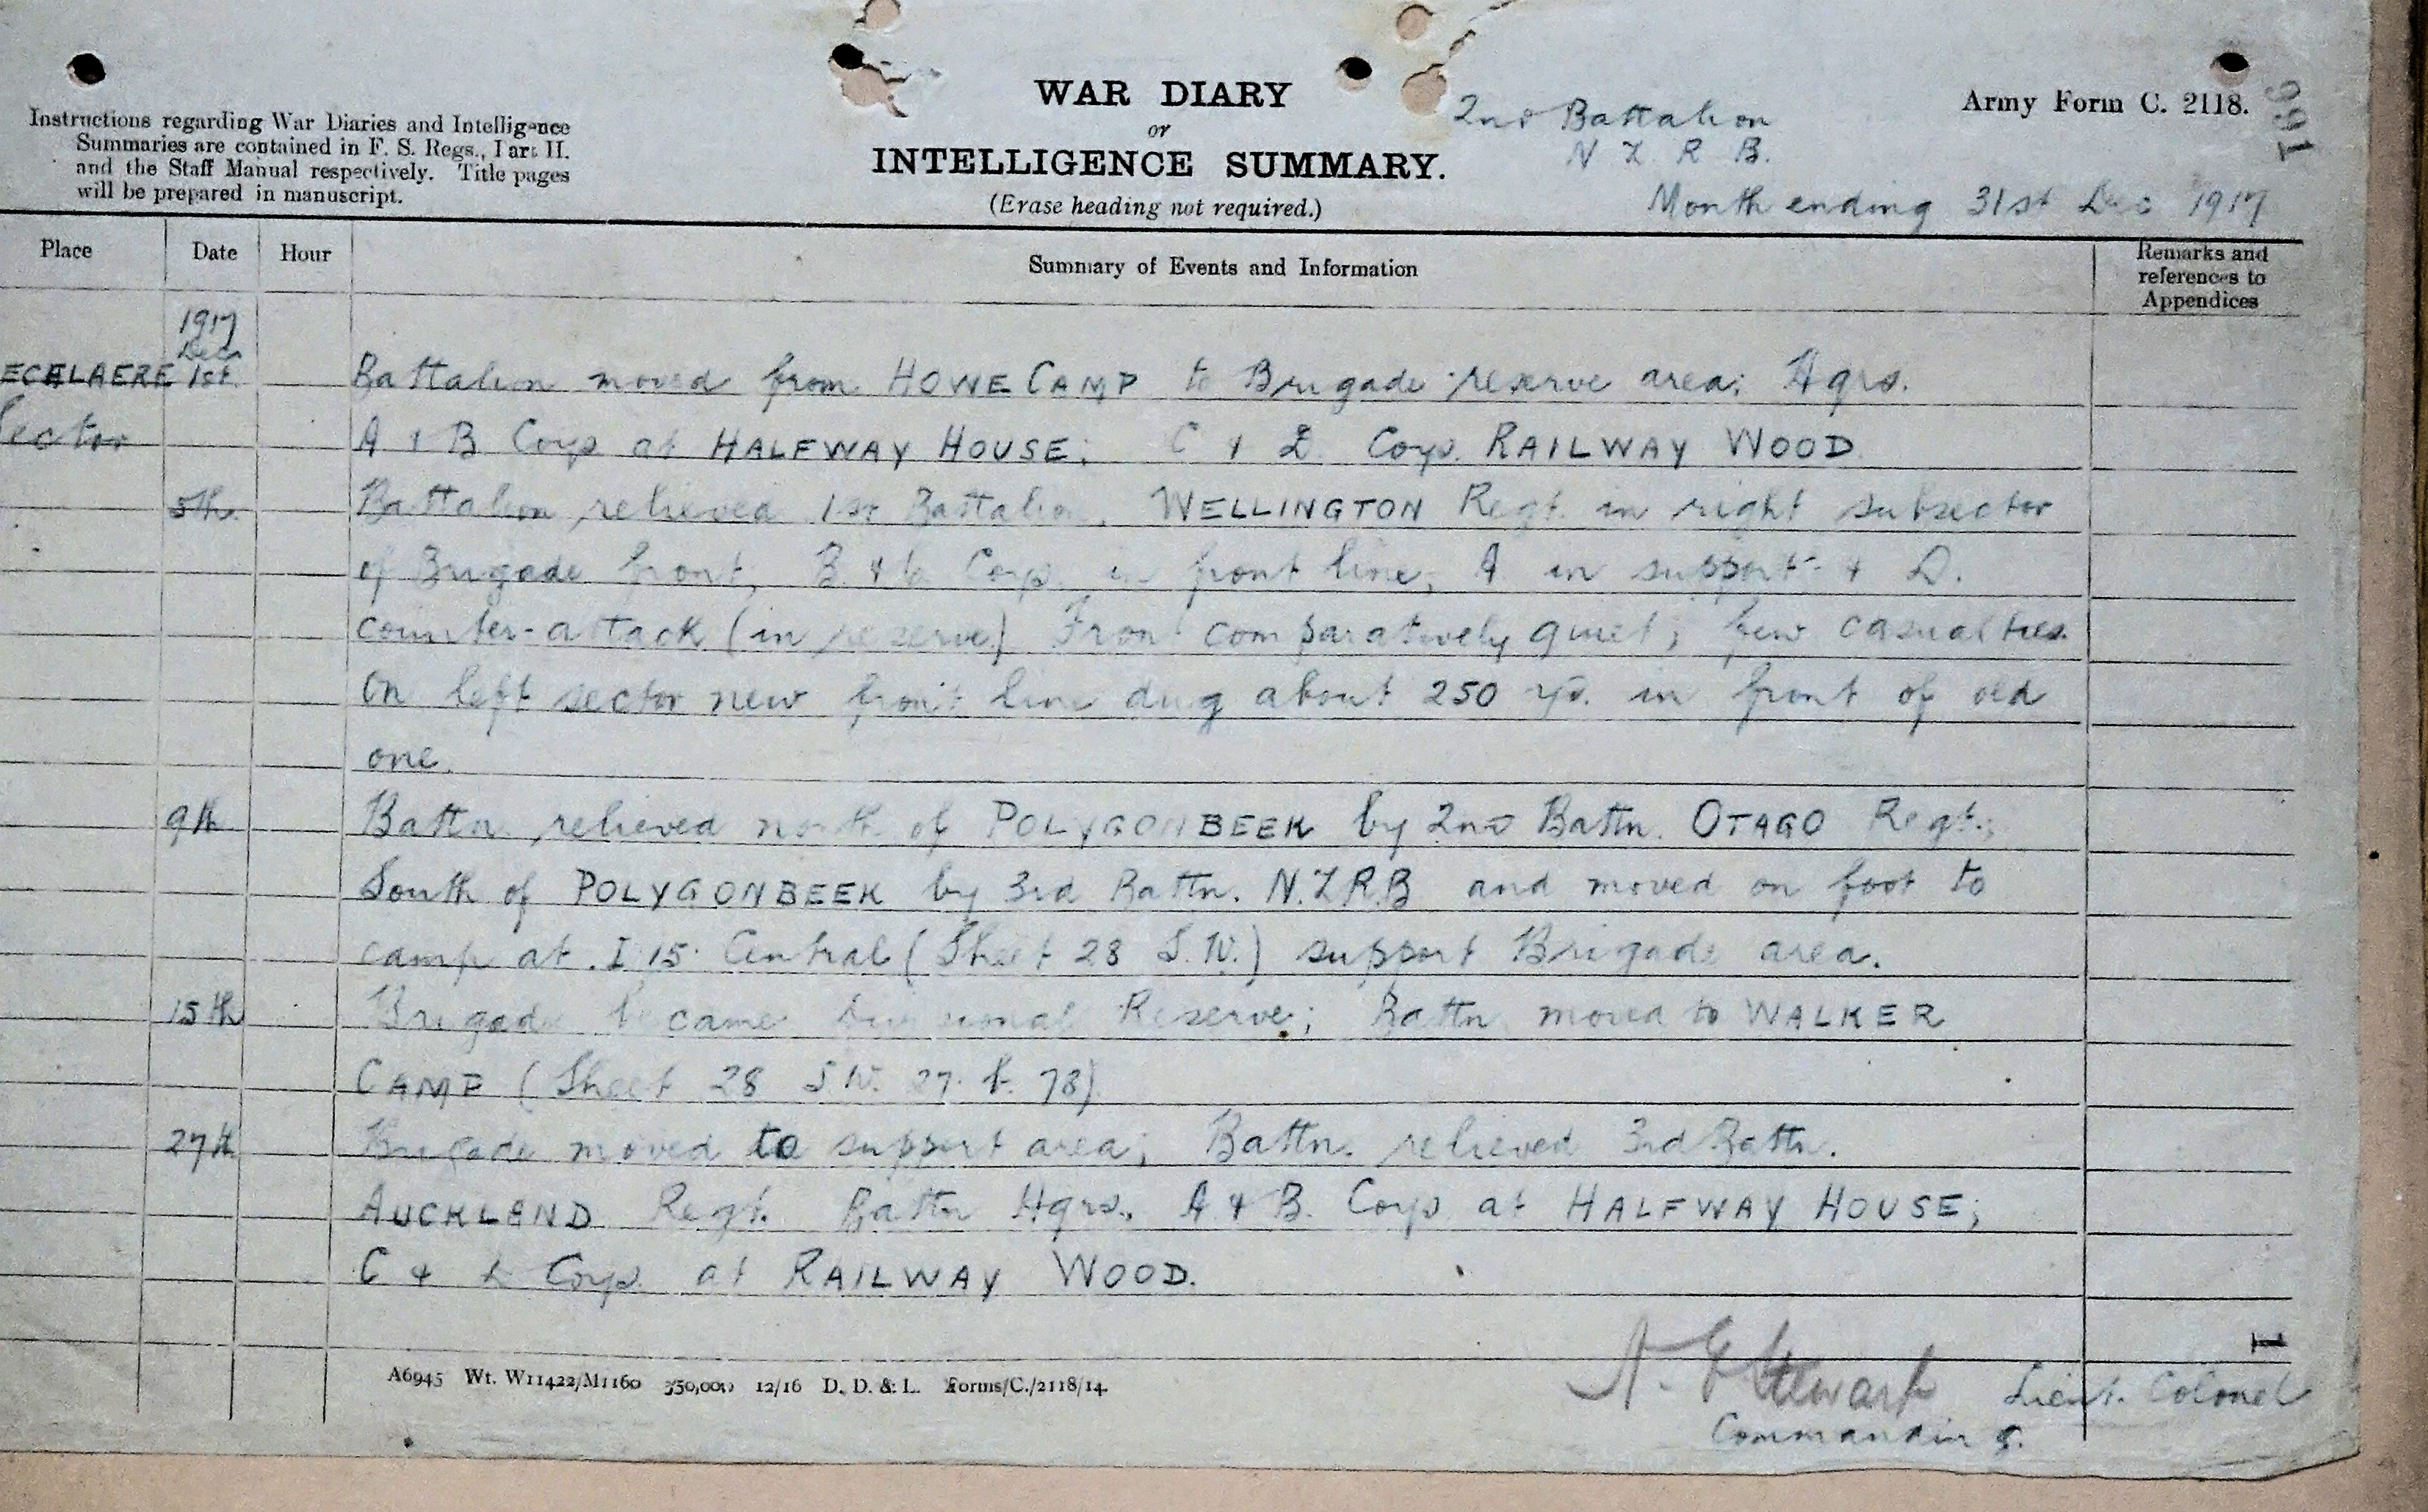 WAR DIARY
or
INTELLIGENCE SUMMARY.
(Erase heading not required.)
Instructions regarding War Diaries and Intelligence
Summaries are contained in F. S. Regs., Part II.
and the Staff Manual respectively. Title pages
will be prepared in manuscript.
2nd Battalion
N Z R B.
Month ending 31st Dec 1917
Army Form C. 2118.
166
Place Date Hour Summary of Events and Information Remarks and
references to
Appendices
1917
Dec
ECELAERE 1st. Battalion moved from HOWE CAMP to Brigade reserve area; Hqrs.
Sector A & B Coys at HALFWAY HOUSE; C & D Coys. RAILWAY WOOD
5th. Battalion relieved 1st Battalion, WELLINGTON Regt. in right subsector
of Brigade front, B & C Coys in front line, A in support & D.
counter-attack (in reserve) Front comparatively quiet; few casualties
On left sector new front line dug about 250 yds. in front of old
one.
9th Battn relieved north of POLYGONBEEK by 2nd Battn. OTAGO Regt.;
South of POLYGONBEEK by 3rd Battn. N.Z.R.B and moved on foot to
camp at I 15 Central (Sheet 28 S.W.) support Brigade area.
15th Brigade became Divisional Reserve; Battn moved to WALKER
CAMP (Sheet 28 S.W. 27. b. 78)
27th Brigade moved to support area; Battn. relieved 3rd Battn.
AUCKLAND Regt. Battn Hqrs, A & B. Coys at HALFWAY HOUSE;
C & D Coys. at RAILWAY WOOD.
Stewart Lieut. Colonel
Commanding.
A6945 Wt. W11422/M1160 350,000 12/16 D. D. & L. Forms/C./2118/14.